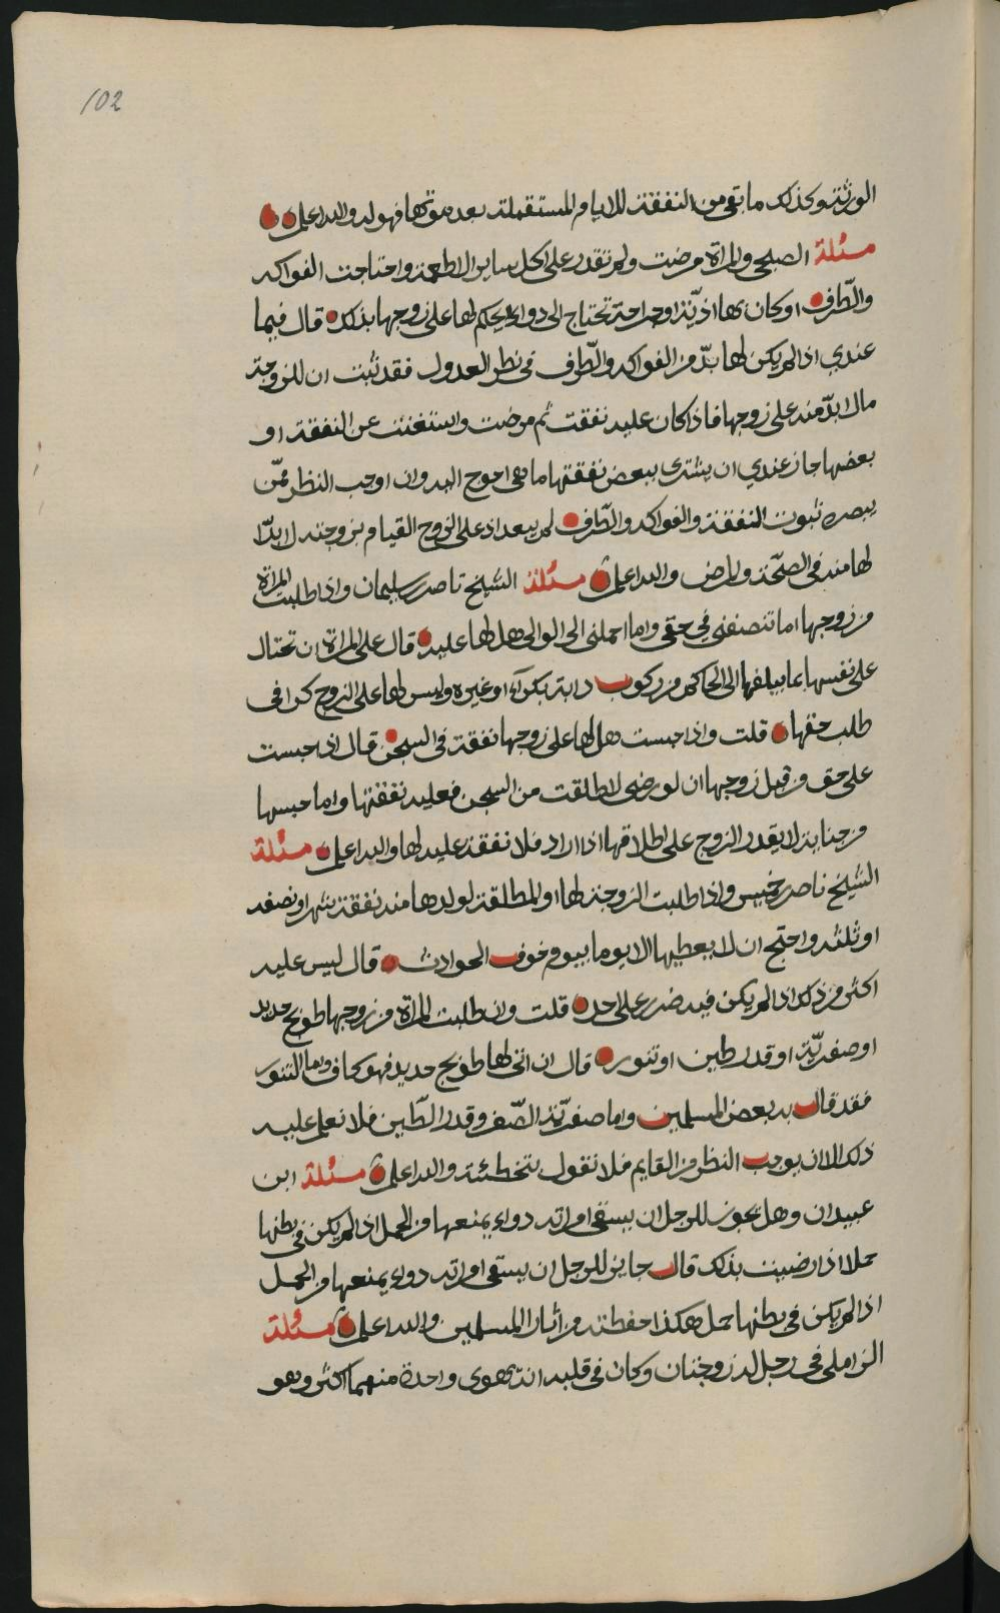 102
الورثته وكذلك ما بقى من النفقة للايام المستقبلة بعد موتها فهو له والله اعلم
مسئلة الصبحي والمراة مرضت ولم تقدر على اكل ساير الاطعمة واحتاجت الفواكه
والطّراف او كان بها اذيّة او جراحة تحتاج الى دواء ايحكم لها على زوجها بذلك قال فيما
عندي اذا لم يكن لها بدّ من الفواكه والطّراف في نظر العدول فقد ثبت ان للزوجة
مالا بدّ منه على زوجها فاذا كان عليه نفقة ثم مرضت واستغنت عن النفقة او
بعضها جاز عندي ان يشترى ببعض نفقتها ما هى احوج اليه وان اوجب النظر ممّن
يبصره ثبوت النفقة والفواكه والطّراف لم يبعد اذ على الزوج القيام بزوجته لا بدّا
لها منه في الصحّة والمرض والله اعلم مسئلة الشيخ ناصر سليمان واذا طلبت المراة
من زوجها اما تنصفني في حقي واما احملني الى الوالي هل لها عليه قال على المراة ان تحتال
على نفسها بما يبلغها الى الحاكم من ركوب دابة بكرآء او غيره وليس لها على الزوج كرا في
طلب حقها قلت واذا حبست هل لها على زوجها نفقة في السجن قال اذا حبست
على حق من قبل زوجها ان لو رضى لاطلقت من السجن فعليه نفقتها واما حبسها
من جناية لا يقدر الزوج على اطلاقها اذا اراد فلا نفقة عليه لها والله اعلم مسئلة
الشيخ ناصر خميس واذا طلبت الزوجة لها او المطلقة لولدها منه نفقة شهر او نصفه
او ثلثه واحتج ان لا يعطيها الا يوما بيوم خوف الحوادث قال ليس عليه
اكثر من ذلك اذا لم يكن فيه ضرر على احد قلت وان طلبت المراة من زوجها طوبج حديد
او صفريّة او قدر طين او تنور قال ان اتى لها طوبج حديد فهو كاف واما التنور
فقد قال به بعض المسلمين واما صفريّة الصّفر وقدر الطّين فلا نعلم عليه
ذلك الا ان يوجب النظر من القايم فلا نقول بتخطئته والله اعلم مسئلة ابن
عبيدان وهل يجوز للرجل ان يسقى امراته دواء يمنعها من الحمل اذا لم يكن في بطنها
حملا اذا رضيت بذلك قال جايز للرجل ان يسقى امراته دواء يمنعها من الحمل
اذا لم يكن في بطنها حمل هكذا حفظته من اثار المسلمين والله اعلم مسئلة
الزاملي في رجل له زوجتان وكان في قلبه انه يهوى واحدة منهما اكثر وهو